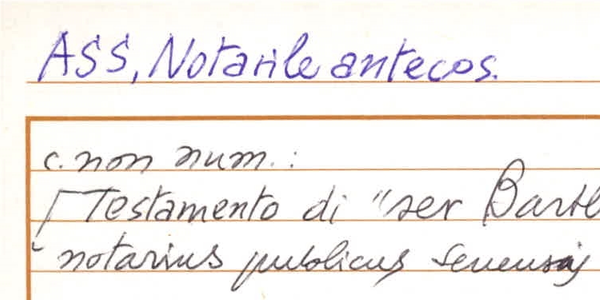 ASS, Notarile antecos.
c. non num.:
[Testamento di "ser Bartl
notarius publicus senensis